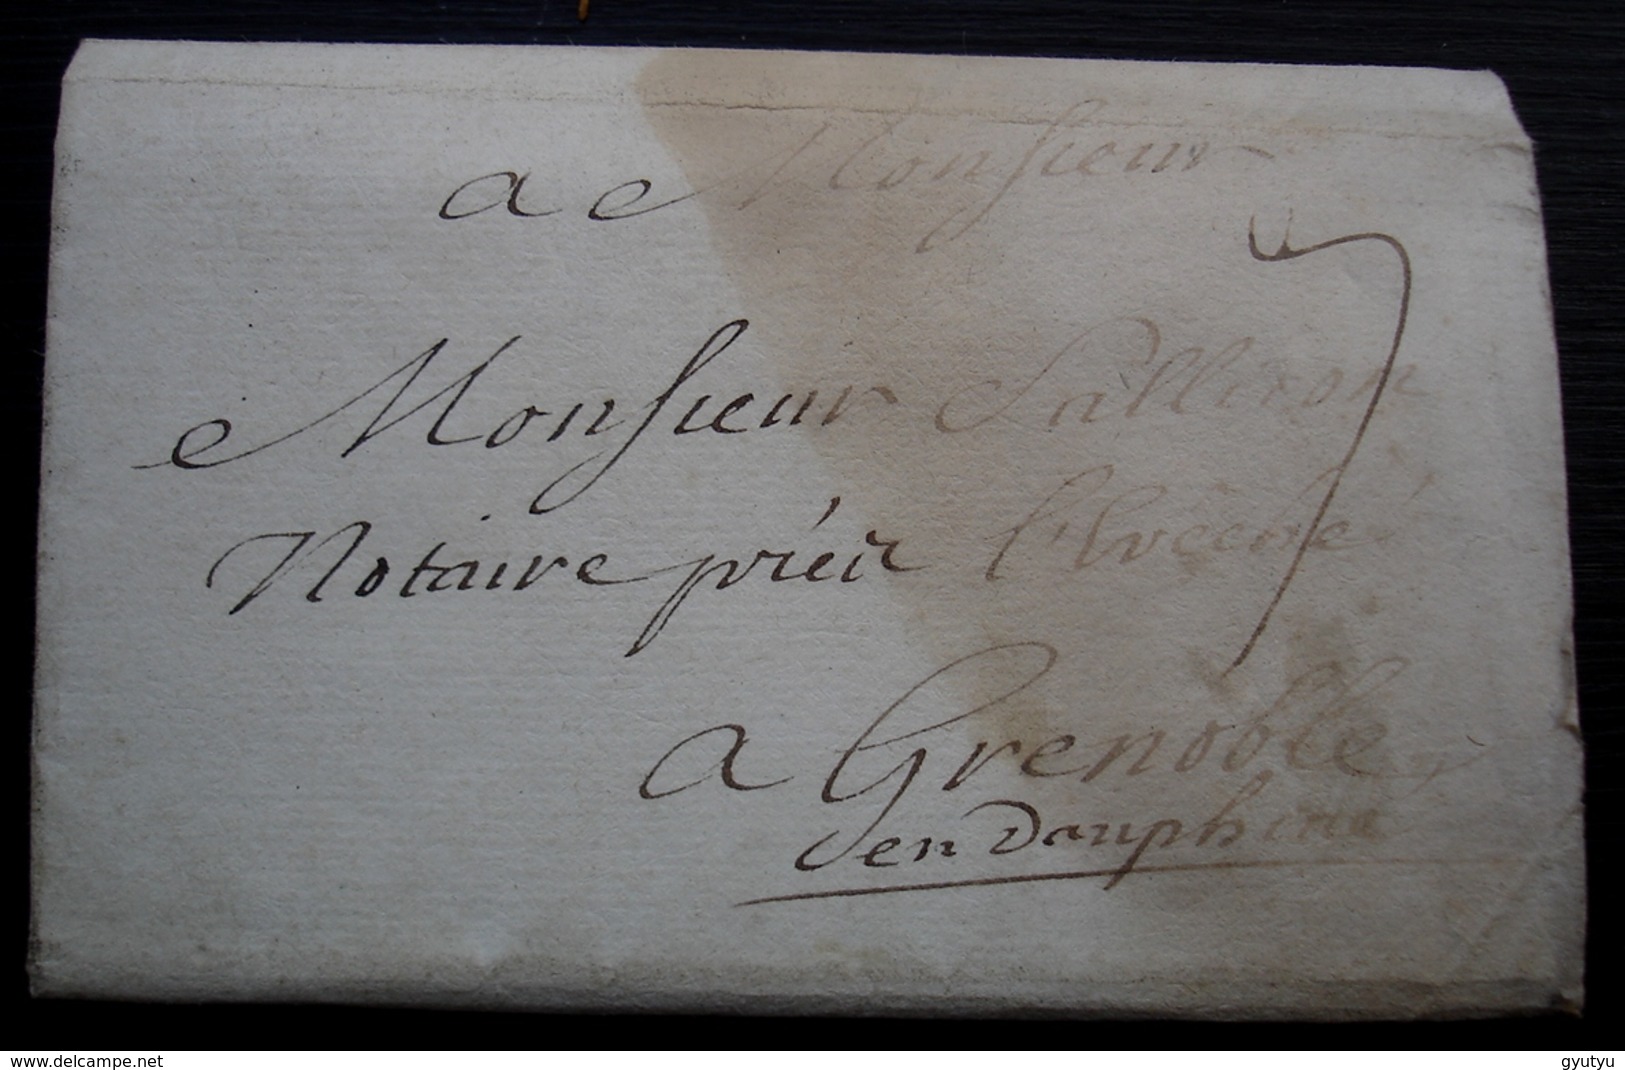 a Monsieur
7
Monsieur Salliron
Notaire prés l'évêché
a Grenoble
en Dauphiné
www.delcampe.net
gyutyu